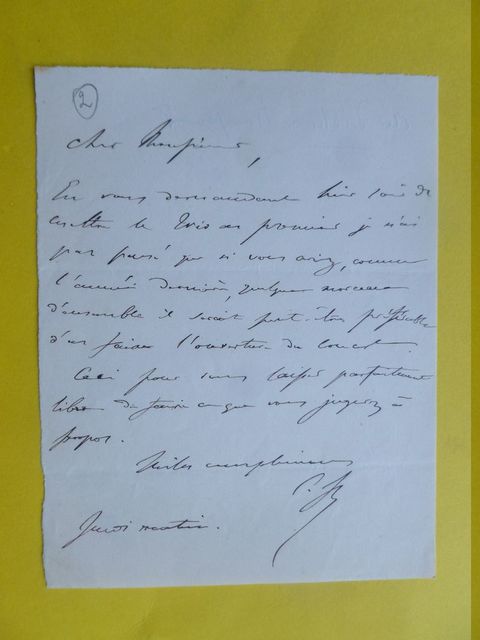 2
Cher Monsieur,
En vous demandant hier soir de
mettre le Trio en premier je n'ai
pas pensé que si vous aviez, comme
l'année dernière, quelque morceau
d'ensemble il serait peut-être préférable
d'en faire l'ouverture du concert.
Ceci pour vous laisser parfaitement
libre de faire ce que vous jugerez à
propos.
Milles compliments
Jeudi matin.